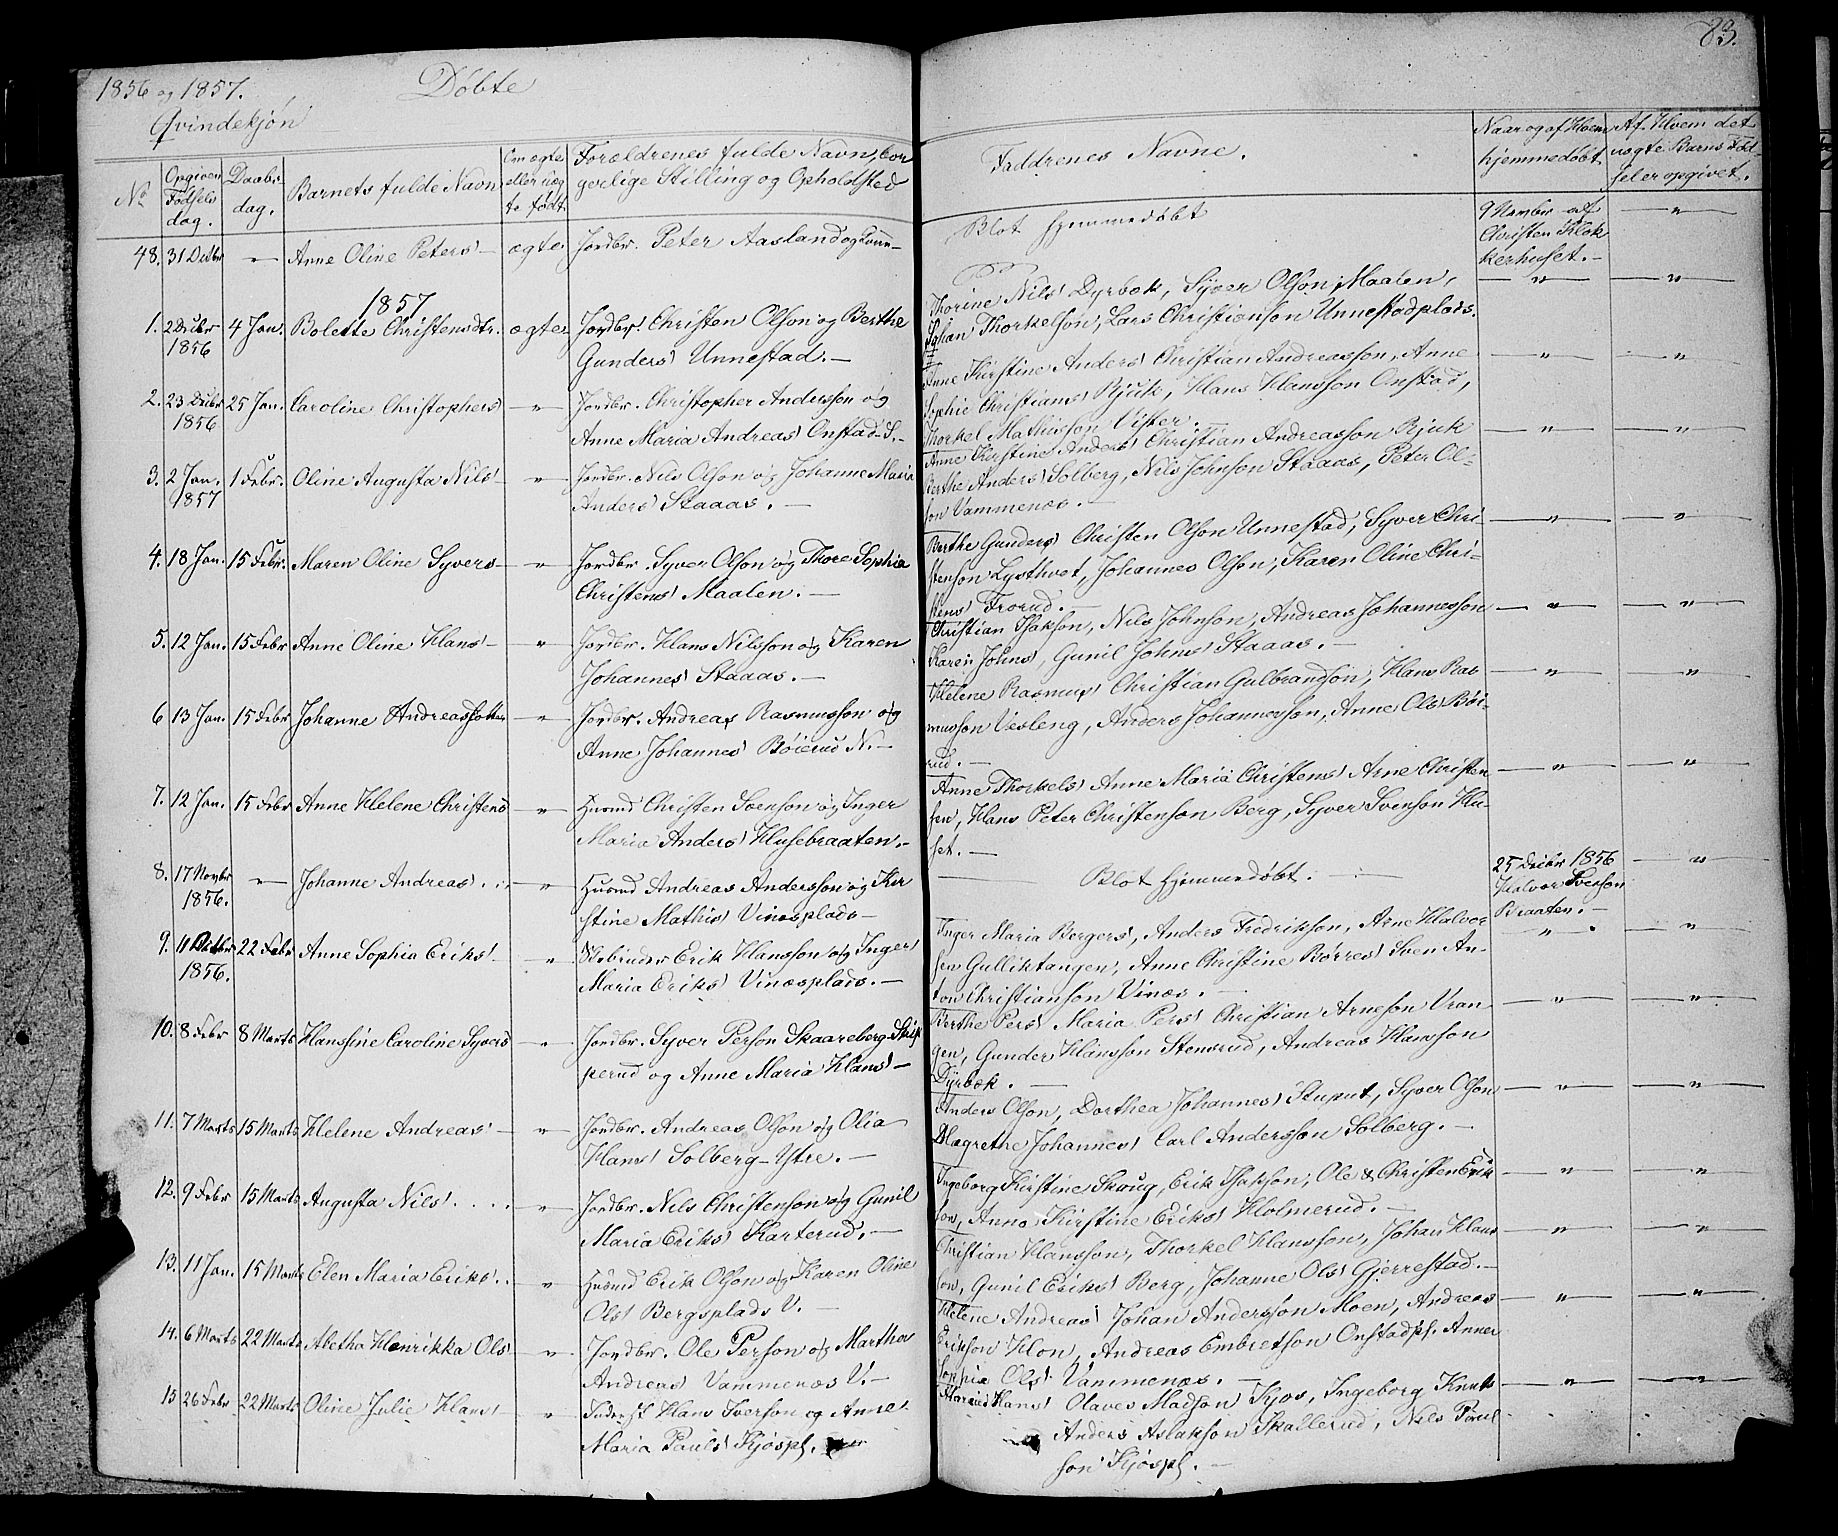 83.
1856 og 1857. Döbte
Qvindekjön
No Opgiven Födsels dag. Daabs dag. Barnets fulde Navn Om ægte eller uægte født. Forældrenes fulde Navn, borgerlige Stilling og Opholdsted
Faddrenes Navne. Naar og af Hvem hjemmedøbt. Af Hvem det uægte Barns Födsel er opgivet.
48. 31 Anne Oline Peters ægte Jordbr. Peter Aasland og
Blot hjemmedøbt 9 af Christen Klokkerhuset.
1857
1. 1856 4 Jan. Bolette Christensdtr. ægte Jordbr. Christen Olson og Berthe
Gunders Unnestad.
Thorine Nils Dyrbæk, Syver Olson, Maalen,
Johan Thorkelson, Lars Christianson Unnestadplads.
2. 23 Decbr 1856 25 Jan. Caroline Christophers " Jordbr. Christopher Andersson og
Anne Maria Andreas Onstad S.
Anne Kirstine Anders Christian Andreasson, Anne
Sophie Christians Rjuk, Hans Hansson Onstad,
Thorkel Mathisson Vister.
3. 2 Jan. 1857 1 Febr. Oline Augusta Nils " Jordbr. Nils Olson og Johanne Maria
Anders Staaas.
Anne Kirstine Anders Christian Andreasson Rjuk
Berthe Anders Solberg, Nils Johnson Staaas, Peter Ol-
son Vammenæs.
4. 18 Jan. 15 Febr. Maren Oline Syvers " Jordbr. Syver Olson og Thore Sophia
Christens Maalen.
Berthe Gunders Christen Olson Unnestad, Syver Chri-
stenson Lysthvet, Johannes Olson, Karen Oline Chri-
stens Frorud.
5. 12 Jan. 15 Febr Anne Oline Hans " Jordbr. Hans Nilsson og Karen
Johannes Staaas.
Christian Isakson, Nils Johnson, Andreas Johannesson
Karen Johns, Gunil Johns Staaas.
6 13 Jan. 15 Febr Johanne Andreasdotter " Jordbr. Andreas Rasmusson og
Anne Johannes Böierud N.
Helene Rasmus Christian Gulbrandson, Hans Ras
musson Vesleng, Anders Johannesson, Anne Ols Böi-
rud.
7. 12 Jan. 15 Febr Anne Helene Christens " Husmd Christen Svenson og Inger
Maria Anders Husebraaten.
Anne Thorkels Anne Maria Christens Arne Christen
sen, Hans Peter Christenson Berg, Syver Svenson Hu-
set.
8. 17 Novbr 1856. Johanne Andreas " Husmd Andreas Andersson og Kir
stine Mathis Vinæsplads
Blot hjemmedøbt. 25 Decbr 1856 Halvor Svenson Braaten.
9. 11 1856. 22 Febr Anne Sophia Eriks " Erik Hansson og Inger
Maria Eriks Vinæsplads.
Inger Maria Bergers, Anders Fredrikson, Arne Halvor
sen Gulliktangen, Anne Christine Börres Sven An-
ton Christianson Vinæs.
10. 8 Febr 8 Marts Hanssine Caroline Syvers " Jordbr. Syver Person Skaareberg Skip
perud og Anne Maria Hans
Berthe Pers Maria Pers Christian Arneson Vran
gen, Gunder Hansson Stensrud, Andreas Hansson
Dyrbæk.
11. 7 Marts 15 Marts Helene Andreas " Jordbr. Andreas Olson og Olia
Hans Solberg Ytre.
Anders Olson, Dorthea Johannes Stuput, Syver Olson
Magrethe Johannes Carl Andersson Solberg.
12. 9 Febr 15 Marts Augusta Nils " Jordbr. Nils Christenson og Gunil
Maria Eriks Karterud.
Ingeborg Kirstine Skoug, Erik Isakson, Ole & Christen Erik
son, Anne Kirstine Eriks Holmerud.
13. 11 Jan. 15 Marts Elen Maria Eriks " Husmd Erik Olson og Karen Oline
Ols Bergsplads V.
Christian Hansson, Thorkel Hansson, Johan Hans
son, Gunil Eriks Berg, Johanne Ols Gjerrestad.
14. 6 Marts 22 Marts Aletha Henrikka Ols " Jordbr. Ole Person og Marthe
Andreas Vammenæs V.
Helene Andreas Johan Andersson Moen, Andreas
Erikson Hlon, Andreas Embretson Onstadpl. Anne
Sophie Ols Vammenæs.
15 26 Febr 22 Marts Oline Julie Hans " Hans Iverson og Anne
Maria Pauls Kjöspl.
Hans Olaves Madson Kjos, Ingeborg Knuts
Anders Aslakson Skallerud, Nils Paul
son Kjöspl.